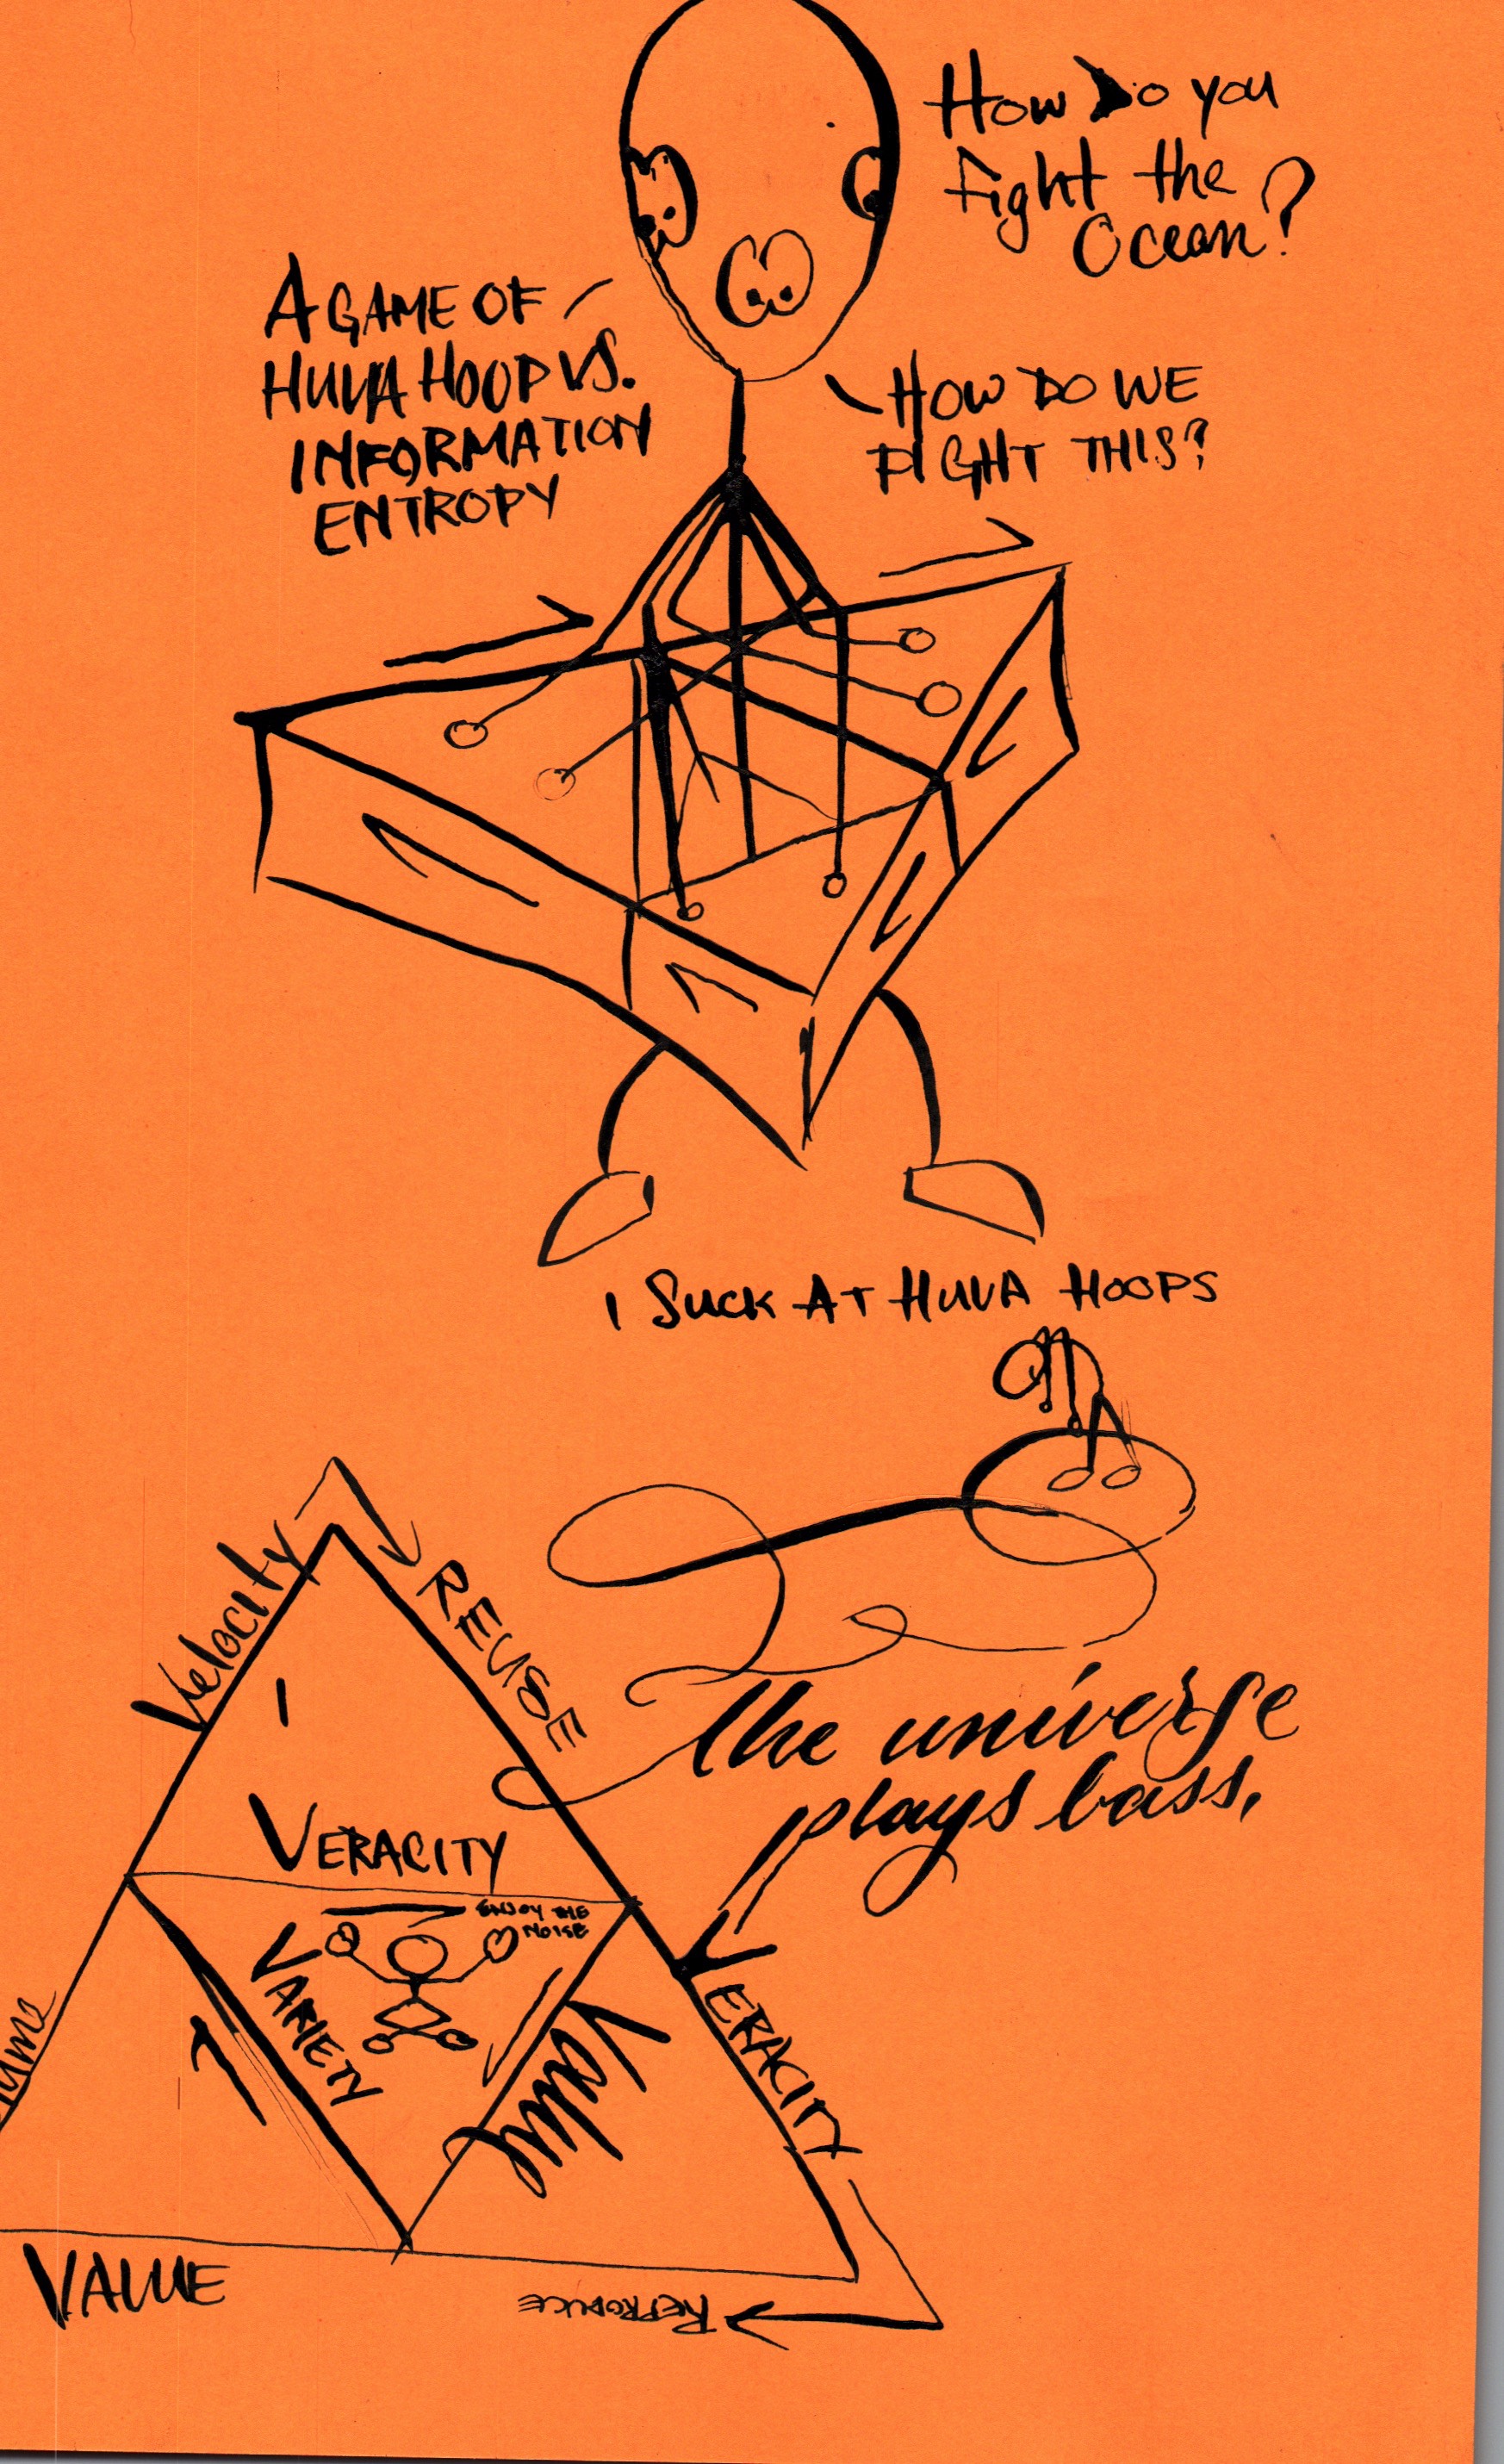 How Do you
fight the
Ocean?
A GAME OF
HULA HOOP VS.
INFORMATION
ENTROPY
HOW DO WE
FIGHT THIS?
I SUCK AT HULA HOOPS
Velocity
REUSE
The universe
plays bass.
VERACITY
ENJOY THE
NOISE
VARIETY
Value
VERACITY
ume
VALUE
REPRODUCE